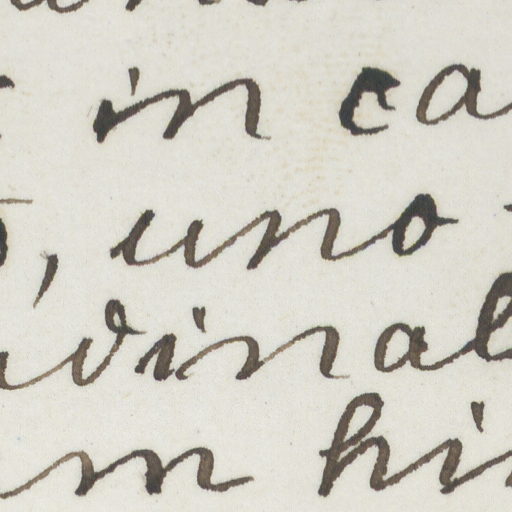 in ca
, uno
dinal
m hi